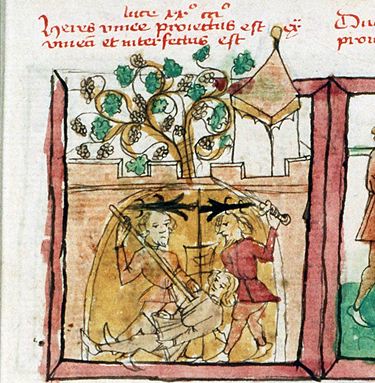 luce xx°
Heres vinee proiectus est ex
vineā et interfectus est